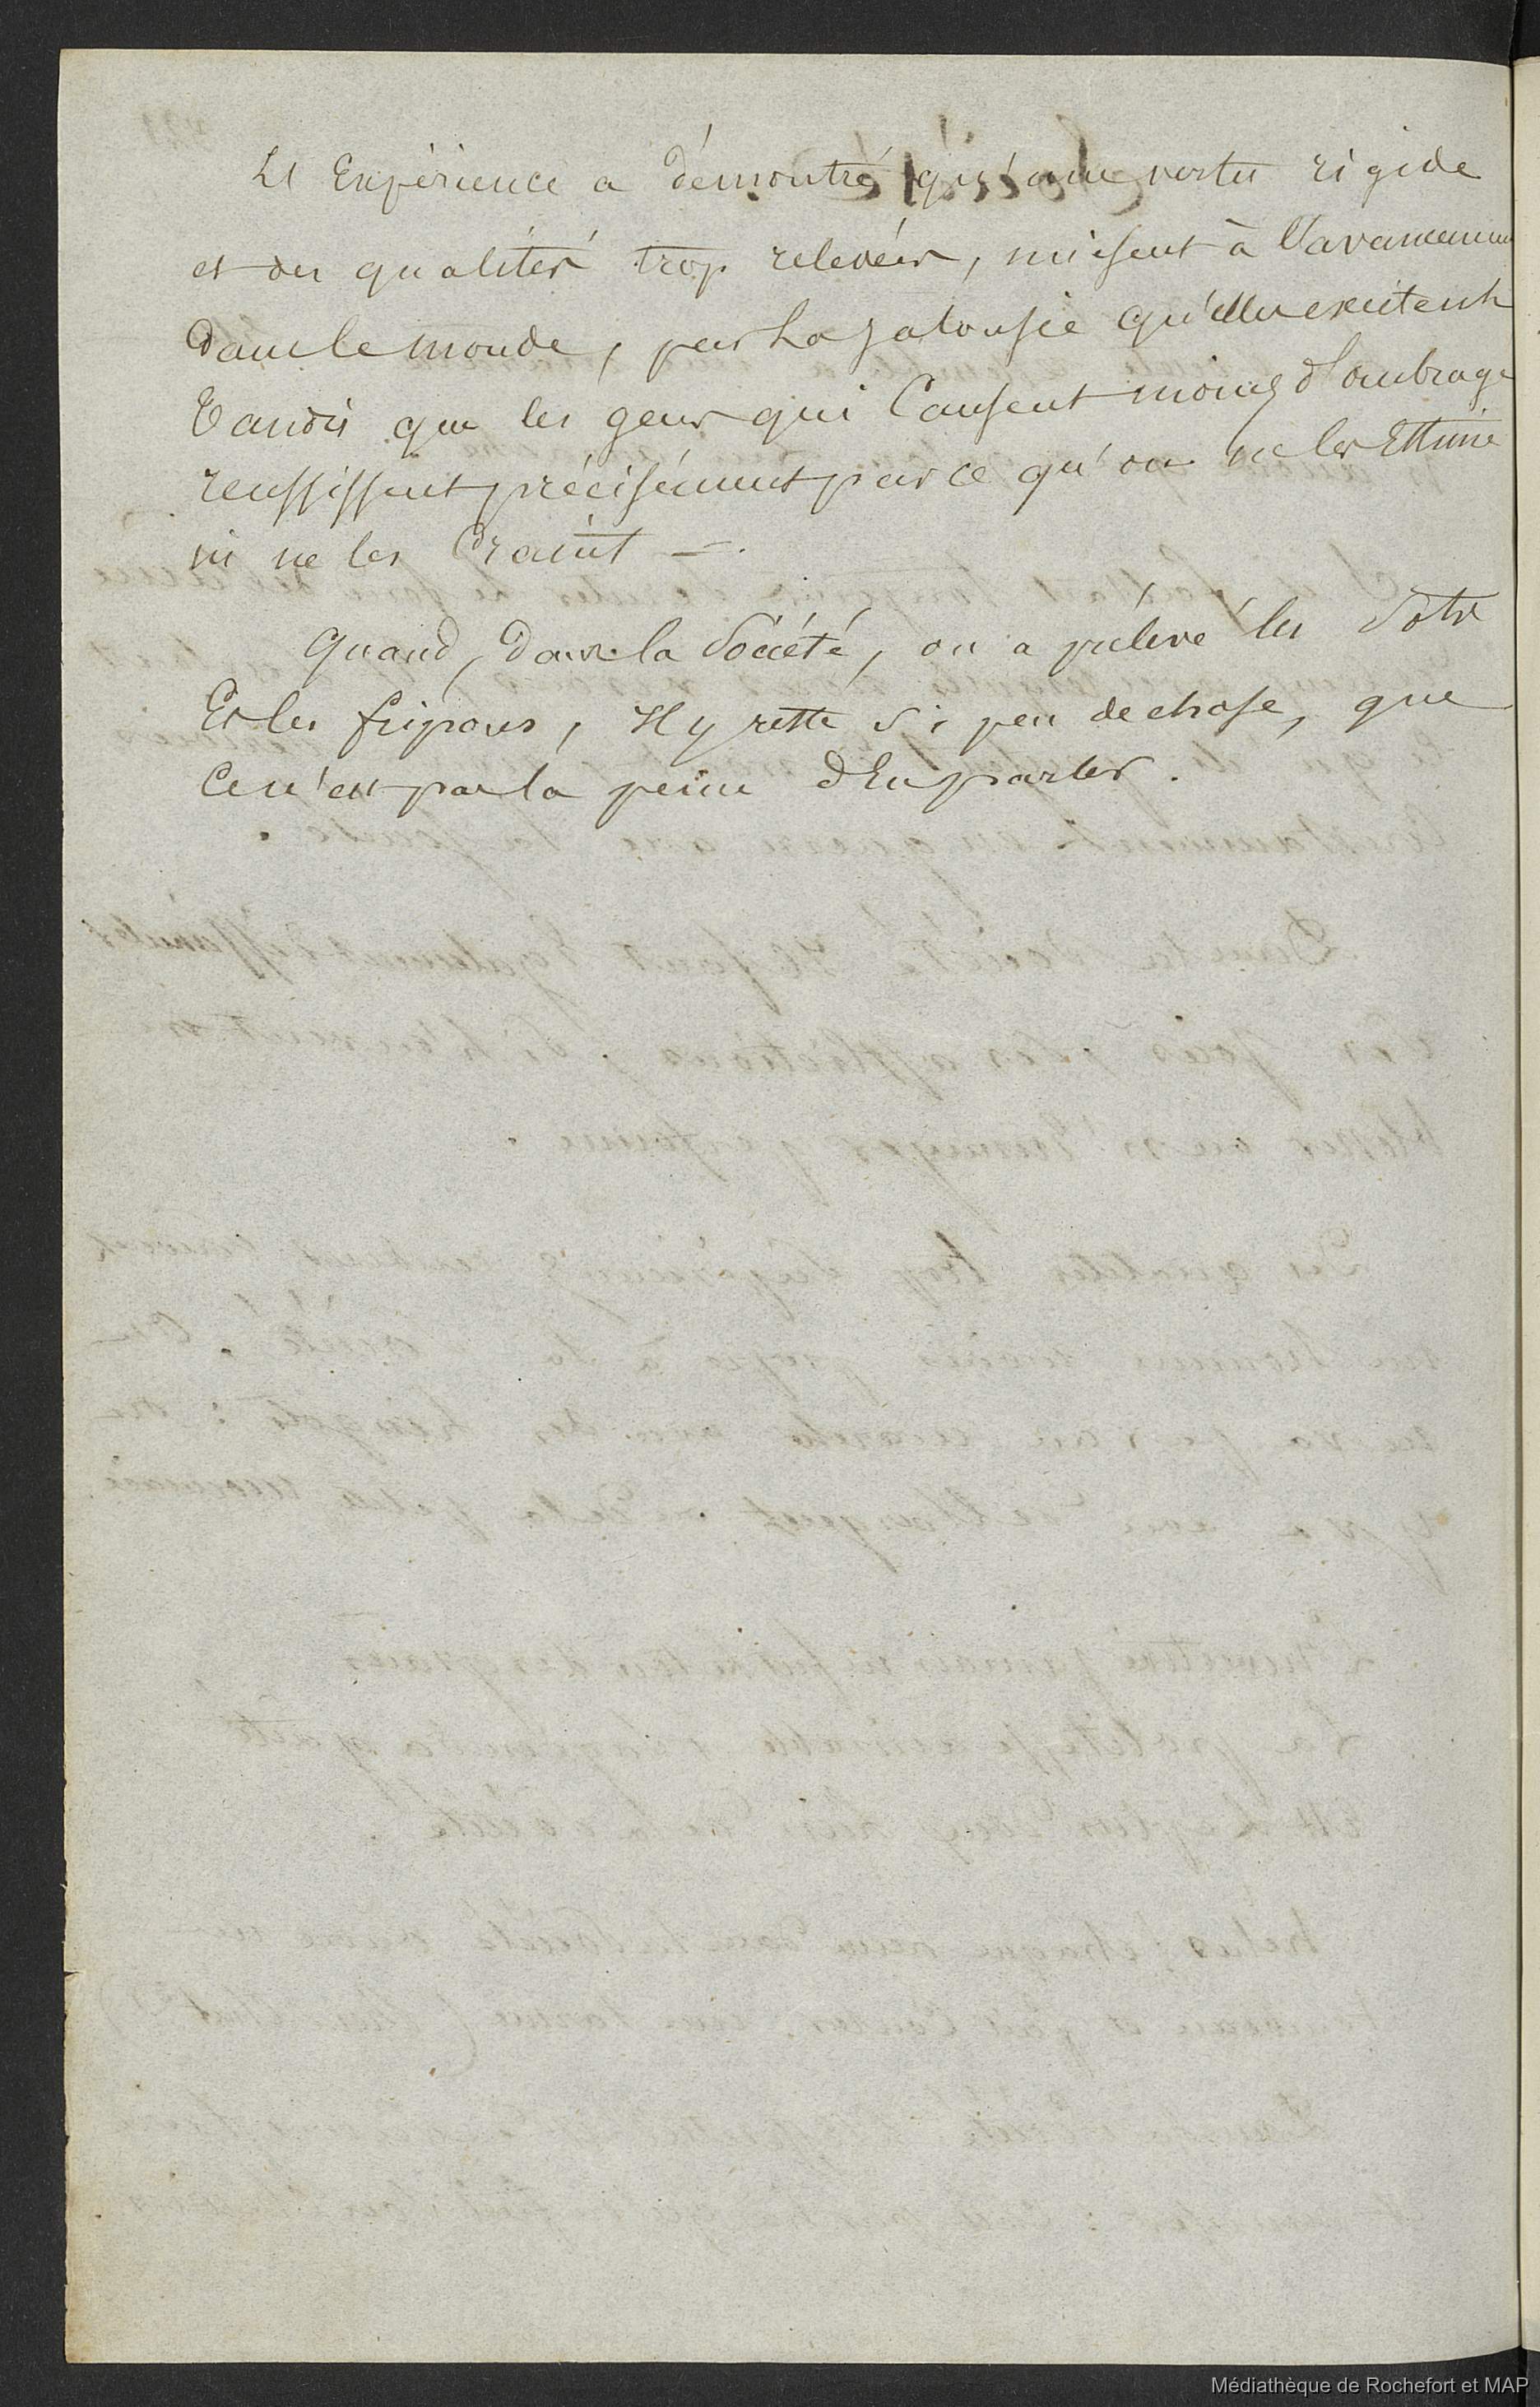 L'Expérience a démontré qu'une vertu rigide
et des qualités trop relevées, nuisent à l'avancement
dans le monde, par la jalousie qu'elles excitent
tandis que les gens qui causent moins d'ombrage
reussissent précisément par ce qu'on ne les Estime
ni ne les Craint —.
Quand, dans la Société, on a prélevé les Sots
Et les fripons, Il y reste si peu de chose, que
Ce n'est pas la peine d'En parler.
Médiathèque de Rochefort et MAP